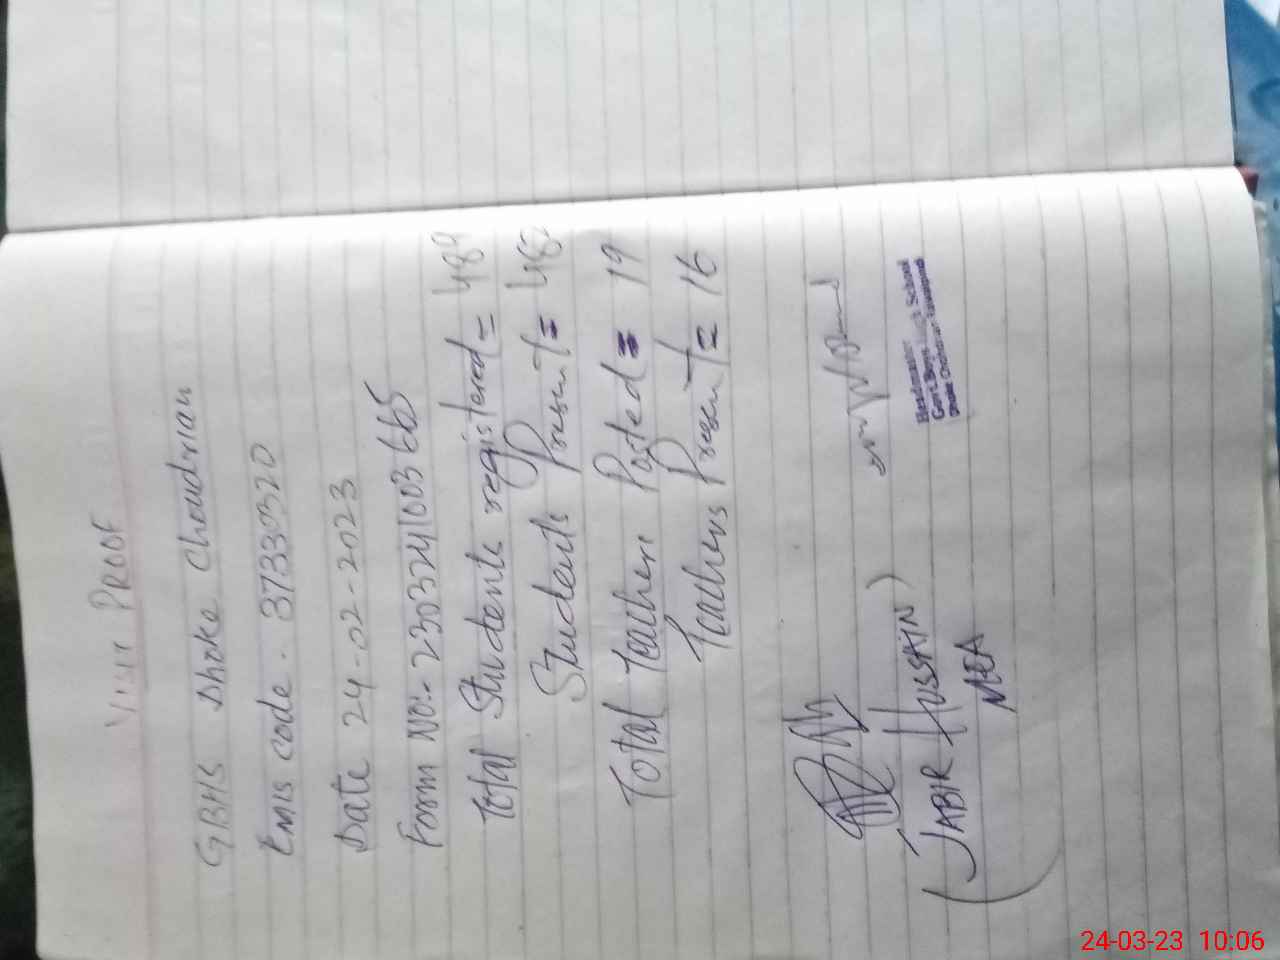 VISIT PROOF
GBHS Dhoke Choudrian
Emis code - 37330320
Date 24-02-2023
Form NO:- 2303241003665
Total Students registered = 489
Students Present = 482
Total Teachers Posted = 19
Teachers Present = 16
(JABIR HUSSAIN)
MEA
Headmaster
Govt. Boys High School
24-03-23 10:06